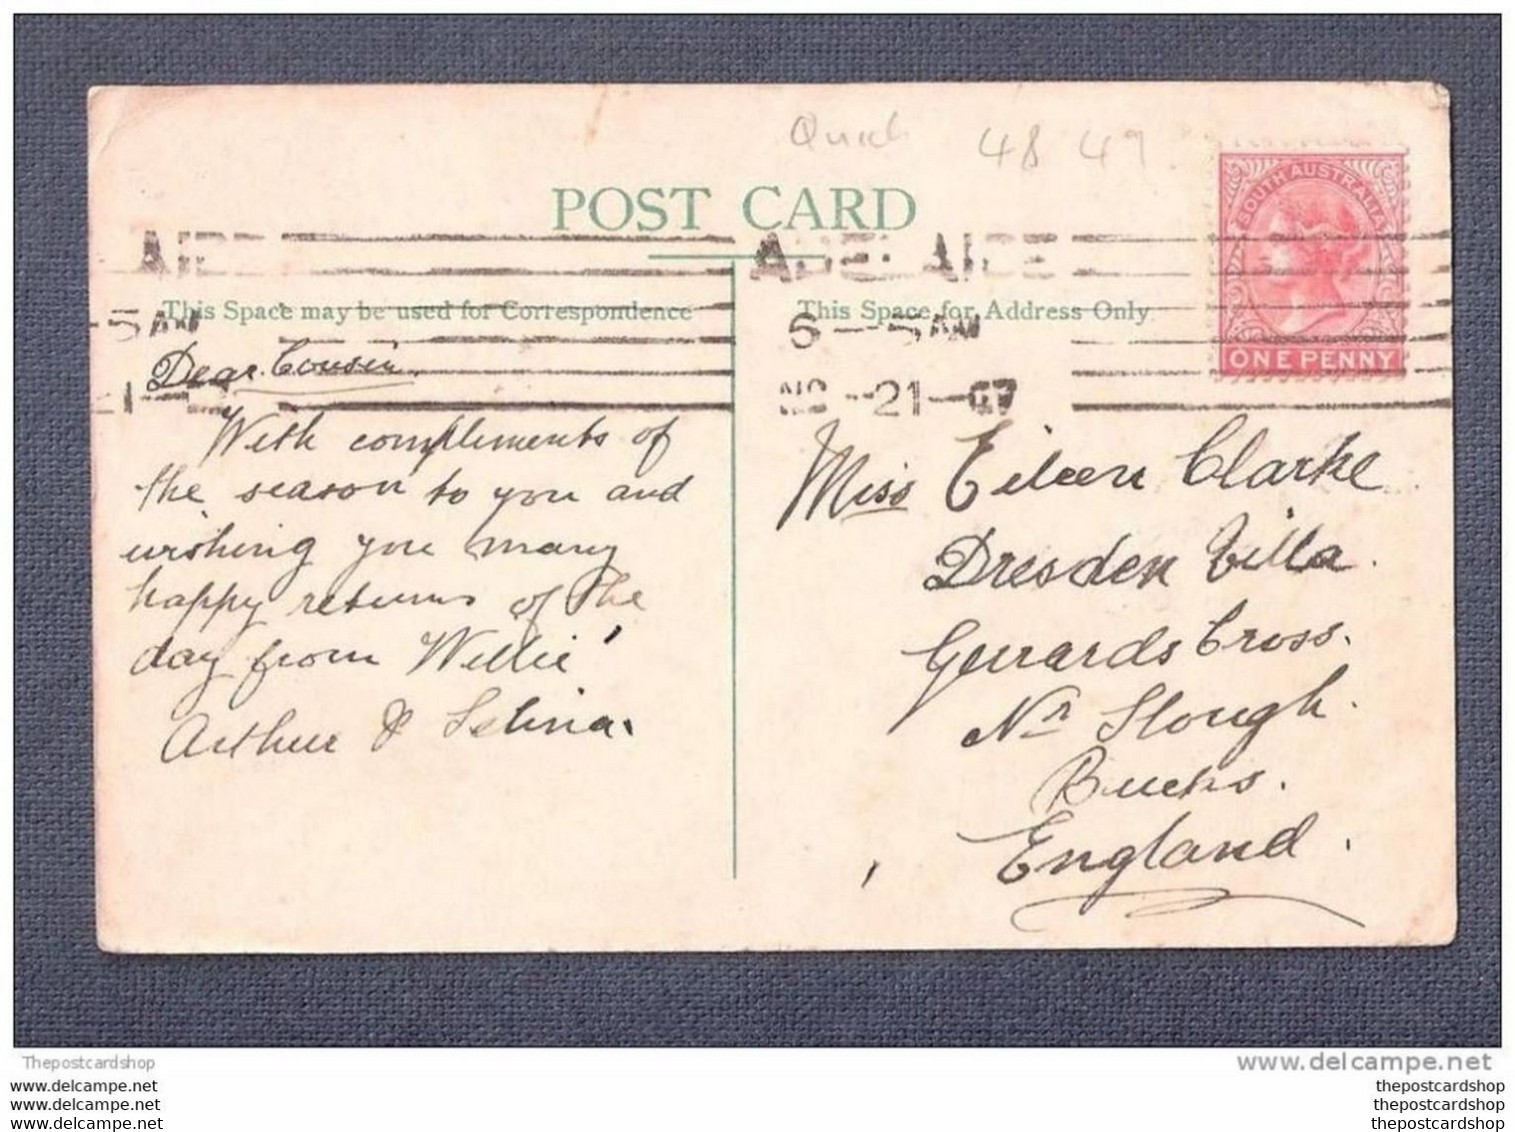 Quick 48 49
POST CARD
SOUTH AUSTRALIA
ONE PENNY
ADELAIDE
6-5 AM
NO-21-07
This Space may be used for Correspondence
This Space for Address Only
5 AM
Dear Cousin,
With compliments of
the season to you and
wishing you many
happy returns of the
day from Willie,
Arthur & Selina.
Miss Eileen Clarke
Dresden Villa.
Gerrards Cross.
Nr Slough.
Bucks.
England.
Thepostcardshop
www.delcampe.net
www.delcampe.net
www.delcampe.net
www.delcampe.net
thepostcardshop
thepostcardshop
thepostcardshop